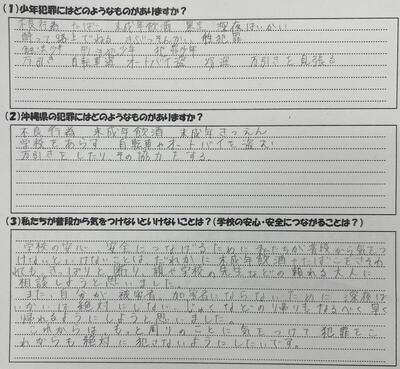 (1)少年犯罪にはどのようなものがありますか?
不良行為 たばこ 未成年飲酒 深夜はいかい
酔って路上でねる 性犯罪
触法少年 犯罪少年
万引き 自転車盗 オートバイ盗 万引きを見張る
(2)沖縄県の犯罪にはどのようなものがありますか?
不良行為 未成年飲酒 未成年きつえん
学校をあらす 自転車やオートバイを盗む
万引きをしたり、その協力をする。
(3)私たちが普段から気をつけないといけないことは?(学校の安心・安全につながることは?)
学校の安心 安全につなげるために私たちが普段から気をつ
けないといけないことは、だれかに未成年飲酒やたばこをさそわ
れても、きっぱりと断り、親や学校の先生などの頼れる大人に
相談しようと思いました。
また、自分が被害者 加害者にならないために 深夜は
いかいは絶対にしない じゅくなどの帰りもなるべく早く
帰れるようにしようと思いました。
これからは、もっと周りのことに気をつけて犯罪をこ
れからも絶対に犯さないようにしたいです。